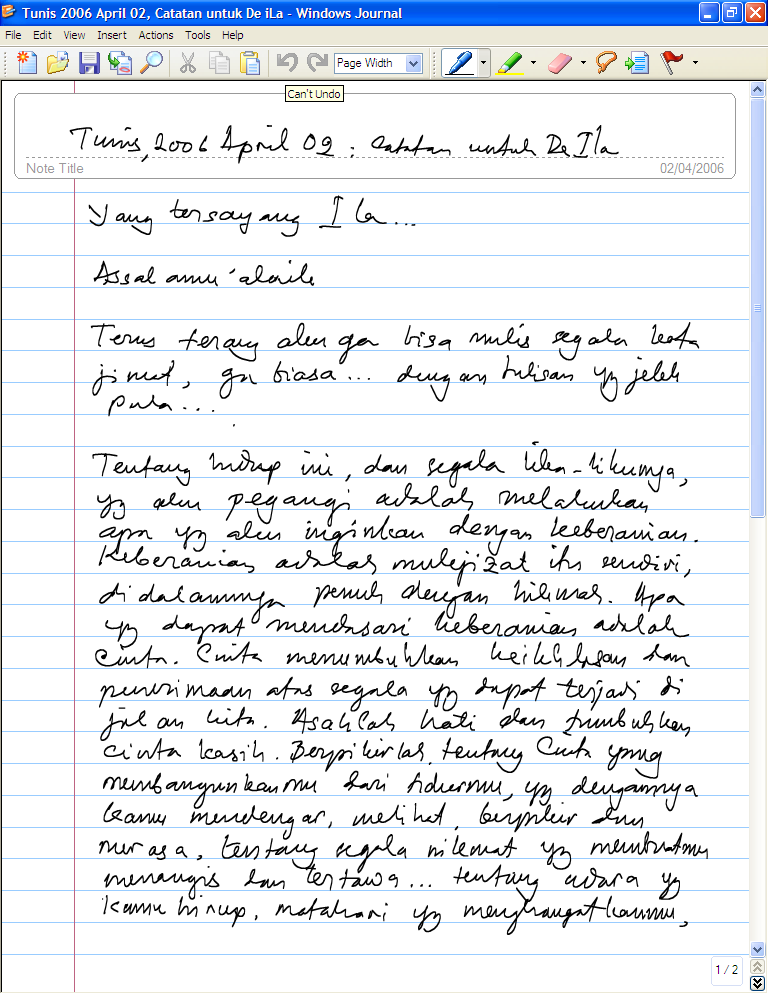 Tunis 2006 April 02, Catatan untuk De iLa - Windows Journal
File Edit View Insert Actions Tools Help
Page Width
Can't Undo
Tunis, 2006 April 02 : Catatan untuk De Ila
Note Title 02/04/2006
Yang tersayang Ila...
Assalamu 'alaik
Terus terang aku ga bisa nulis segala kata
jimat, ga biasa... dengan tulisan yg jelek
pula...
Tentang hidup ini, dan segala lika-likunya,
yg aku pegangi adalah melakukan
apa yg aku inginkan dengan keberanian.
Keberanian adalah mukjizat itu sendiri,
didalamnya penuh dengan hikmah. Apa
yg dapat mendasari keberanian adalah
cinta. Cinta menumbuhkan keikhlasan dan
penerimaan atas segala yg dapat terjadi di
jalan kita. Asahlah hati dan tumbuhkan
cinta kasih. Berpikirlah tentang Cinta yang
membangunkanmu dari tidurmu, yg dengannya
kamu mendengar, melihat, berpikir dan
merasa, tentang segala nikmat yg membuatmu
menangis dan tertawa... tentang udara yg
kamu hirup, matahari yg menghangatkanmu,
1 / 2